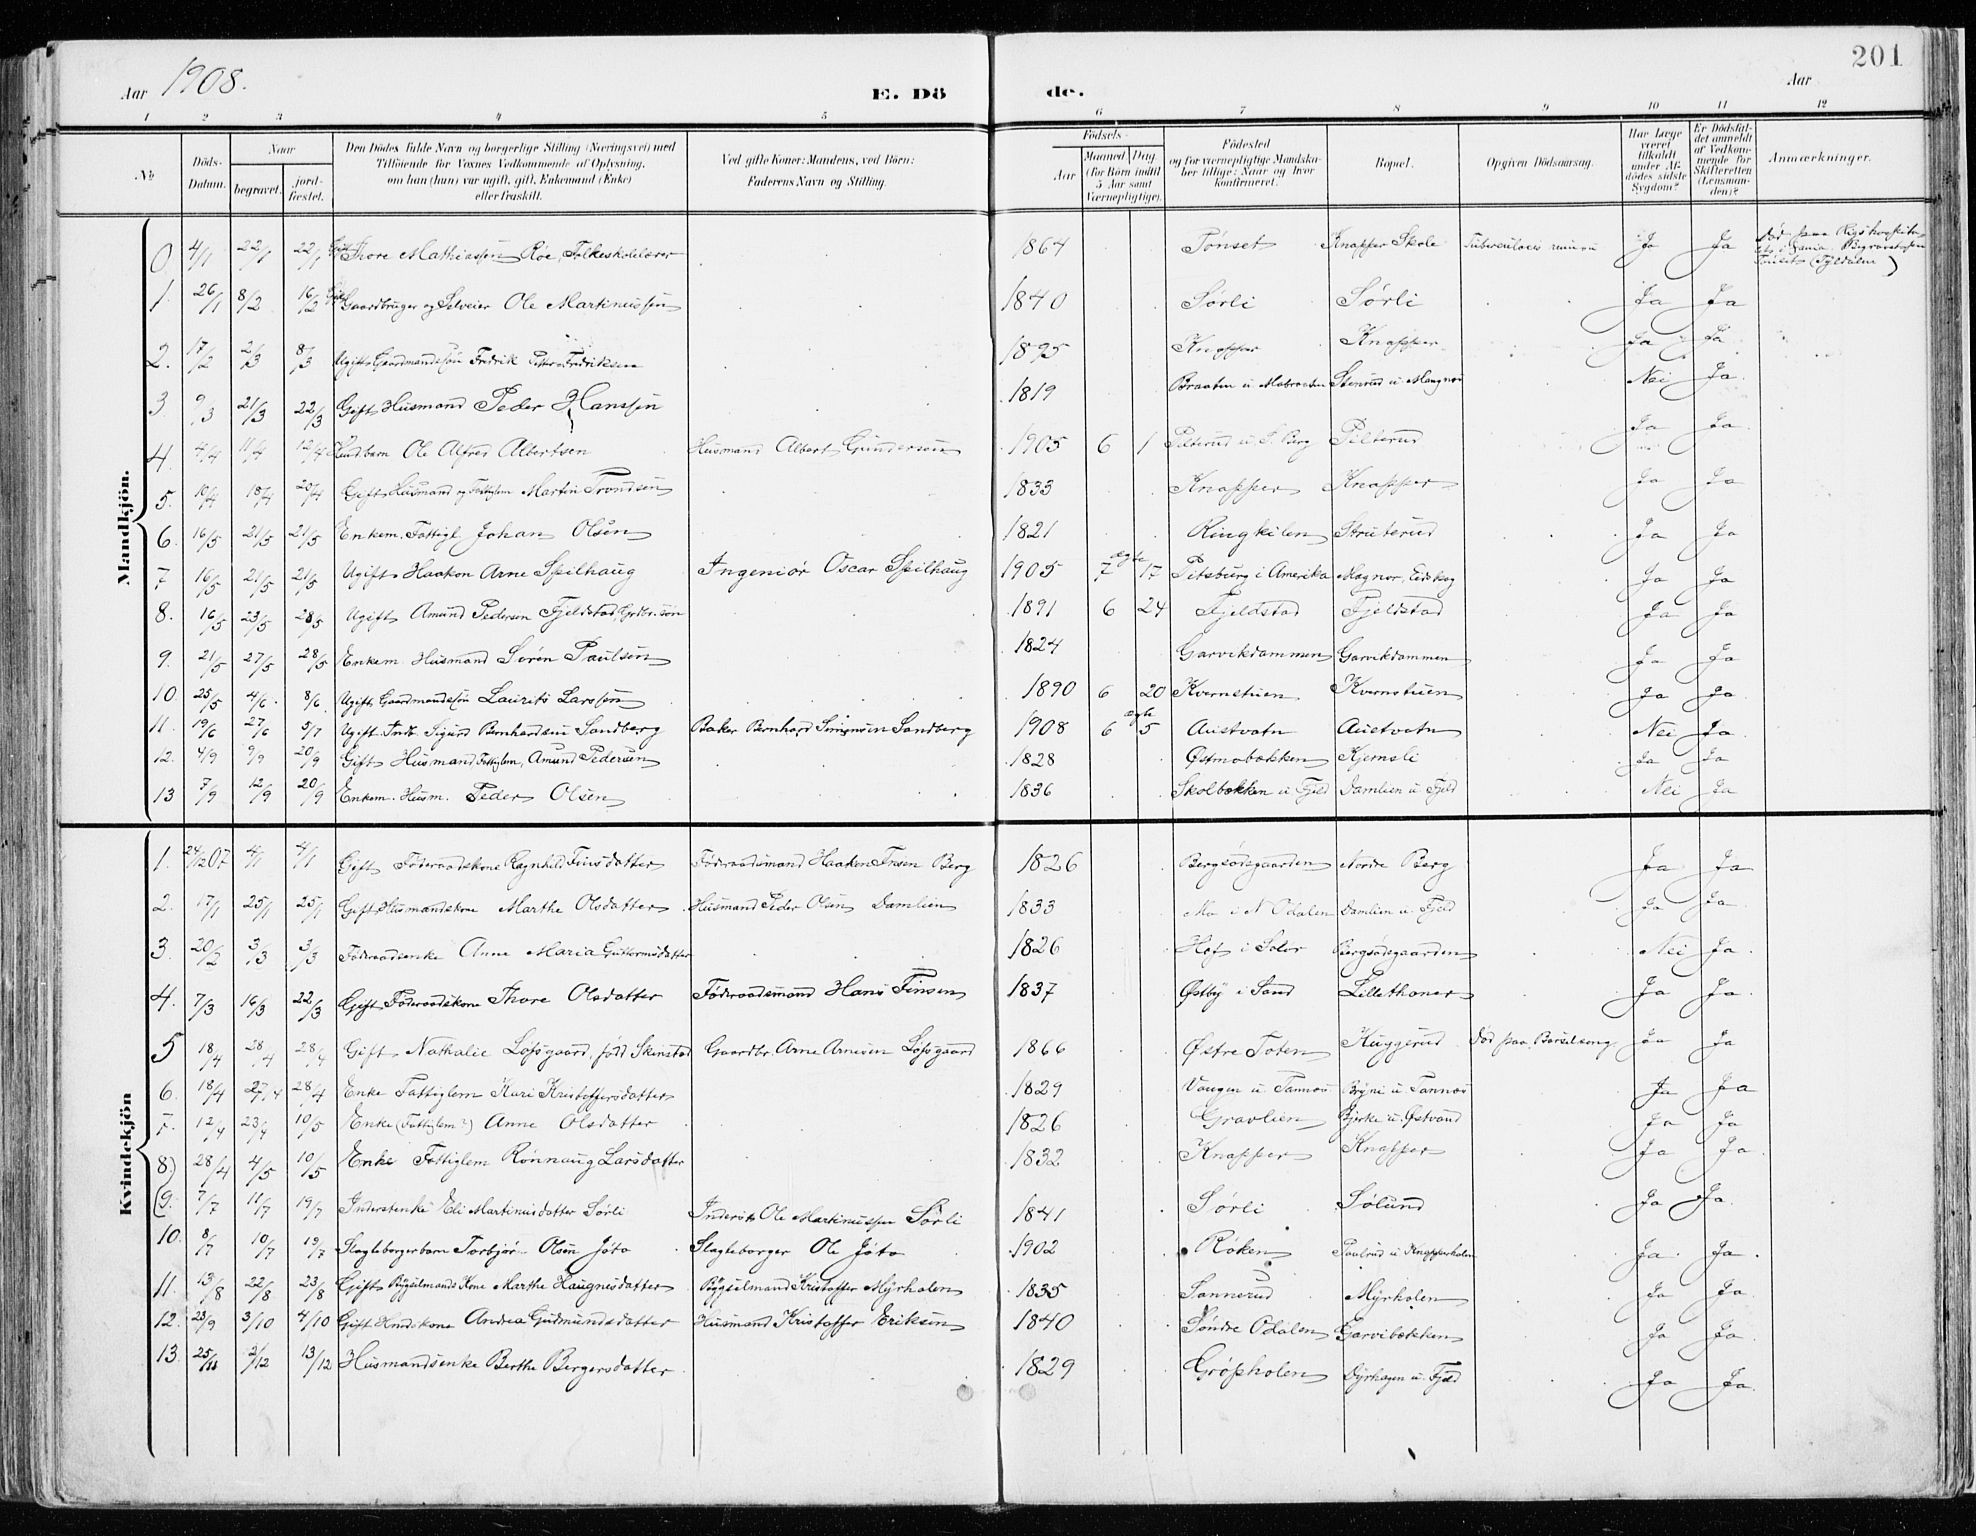 201
Aar 1908.
E. Dö de.
Aar
1 2 3 4 5 6 7 8 9 10 11 12
№
Döds-Datum.
Naar
begravet.
jordfæstet.
Den Dödes fulde Navn og borgerlige Stilling (Næringsvei) med
Tilföiende for Voxnes Vedkommende af Oplysning,
om han (hun) var ugift, gift, Enkemand (Enke)
eller fraskilt.
Ved gifte Koner: Mandens, ved Börn:
Faderens Navn og Stilling.
Födsels-
Aar
Maaned Dag
(for Börn indtil
5 Aar samt
Værnepligtige).
Födested
og for værnepligtige Mandskaber tillige: Naar og hvor
konfirmeret.
Bopæl.
Opgiven Dödsaarsag.
Har Læge
været
tilkaldt
under Afdödes sidste
Sygdom?
Er Dödsfaldet anmeldt
af Vedkommende for
Skifteretten
(Lensmanden)?
Anmærkninger.
Mandkjön.
0. 4/1 22/1 22/1 Gift Thore Mathiassen Røe, Folkeskolelærer 1864 Tønset Knapper Skole Tuberculosis Ja Ja Død paa Rigshospitalet
1. 26/1 8/2 16/2 Gift Gaardbruger og Selveier Ole Martinussen 1840 Sørli Sørli Ja Ja
2. 17/2 2/3 8/3 Ugift Gaardmandssøn Fredrik Petter Fredriksen 1895 Knapper Knapper Ja Ja
3 9/3 21/3 22/3 Gift Husmand Peder Hanssen 1819 Braaten u Mabraaten Stenrud u Magnor Nei Ja
4. 4/4 11/4 12/4 Ole Alfred Albertsen Husmand Albert Gundersen 1905 6 1 Pilterud u. S. Berg Pilterud Ja Ja
5. 10/4 18/4 20/4 Gift Husmand og Fattiglem Martin Trondsen 1833 Knapper Knapper Ja Ja
6. 16/5 21/5 21/5 Enkem. Fattigl Johan Olsen 1821 Ringkilen Struterud Ja Ja
7 16/5 21/5 21/5 Ugift Haakon Arne Spilhaug Ingeniør Oscar Spilhaug 1905 7 ægte 17 Pitsburg i Amerika Magnor, Eidskog Ja Ja
8. 16/5 23/5 28/5 Ugift Amund Pedersen Fjeldstad, Grdbr. søn 1891 6 24 Fjeldstad Fjeldstad Ja Ja
9. 21/5 27/5 28/5 Enkem. Husmand Søren Paulsen 1824 Garvikdammen Garvikdammen Ja Ja
10. 25/5 4/6 8/6 Ugift Gaardmandssøn Laurits Larssen 1890 6 20 Kvernstuen Kvernstuen Ja Ja
11. 19/6 27/6 5/7 Ugift Indb. Sigurd Bernhardsen Sandberg Baker Bernhard Simensen Sandberg 1908 6 ægte 5 Austvatn Austvatn Nei Ja
12. 4/9 9/9 20/9 Gift Husmand Fattiglem, Amund Pedersen 1828 Østmobækken Kjernsli Ja Ja
13 7/9 12/9 20/9 Enkem. Husm. Peder Olsen 1836 Skolbækken u Fjeld Damlien u Fjeld Nei Ja
Kvindekjön
1. 24/12 07 4/1 4/1 Gift Föderaadskone Ragnhild Finsdatter Föderaadsmand Haaken Fnsen Berg 1826 Bergsødegaarden Nordre Berg Ja Ja
2. 17/1 25/1 25/1 Gift Husmandskone Marthe Olsdatter Husmand Peder Olsen Damlien 1833 Mo i N Odalen Damlien u. Fjeld Ja Ja
3. 20/2 3/3 3/3 Föderaadsenke Anne Maria Guttormsdatter 1826 Hof i Solør Bergsødegaarden Nei Ja
4. 7/3 16/3 22/3 Gift Föderaadskone Thore Olsdatter Föderaadsmand Hans Finsen 1837 Østby i Sand Lillethoner Ja Ja
5 18/4 28/4 28/4 Gift Nathalie Lofsgaard, född Skinstad Gaardbr. Arne Arnesen Lofsgaard 1866 Østre Toten Huggerud Død paa Barselseng Ja Ja
6. 18/4 27/4 28/4 Enke Fattiglem Kari Kristoffersdatter 1829 Vangen u Tannæs Bryni u Tannæs Ja Ja
7. 12/4 23/4 10/5 Enke (Fattiglem?) Anne Olsdatter 1826 Gravlien Bjerke u. Østvand Ja Ja
8.) 28/4 4/5 10/5 Enke Fattiglem Rønnaug Larsdatter 1832 Knapper Knapper Ja Ja
(9. 7/7 11/7 19/7 Inderstenke Eli Martinusdatter Sørli Inderst Ole Martinussen Sørli 1841 Sørli Sølund Ja Ja
10. 8/7 10/7 19/7 Slagteborgerbarn Torbjør Olsen Jota Slagteborger Ole Jota 1902 Røken Paulrud u Knapperholen Ja Ja
11. 13/8 22/8 23/8 Gift Bygselmands Kone Marthe Haagnesdatter Bygselmand Kristoffer Myrholen 1835 Sannerud Myrholen Ja Ja
12. 23/9 3/10 4/10 Gift Hmdskone Andrea Gudmundsdatter Husmand Kristoffer Eriksen 1840 Søndre Odalen Garvibækken Ja Ja
13. 25/11 2/12 13/12 Husmandsenke Berthe Bergersdatter 1829 Grøpholen Dyrhagen u. Fjeld Ja Ja